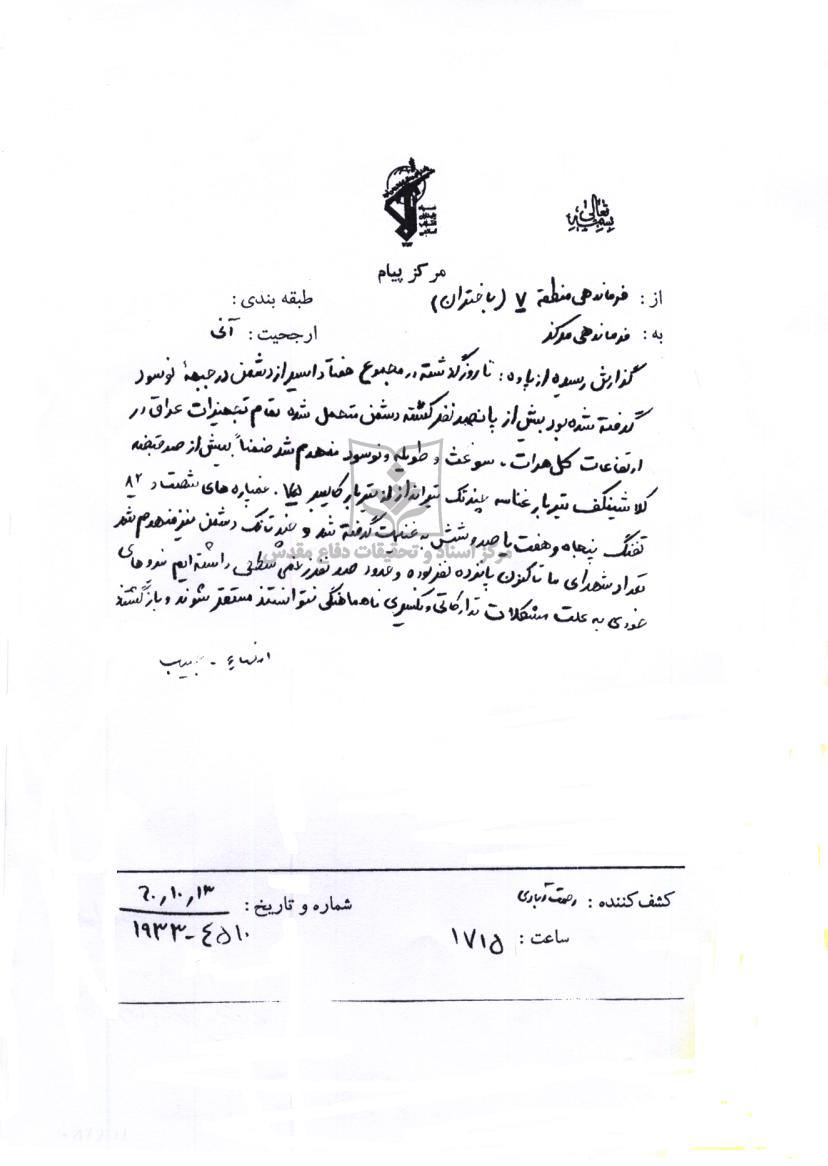 بسمه تعالی
سپاه پاسداران انقلاب اسلامی
مرکز پیام
از : فرماندهی منطقه ۷ (باختران) طبقه بندی :
به : فرماندهی مرکز ارجحیت : آنی
گزارش رسیده از پاوه : تا روز گذشته در مجموع هفتاد اسیر از دشمن در جبههٔ نوسود
گرفته شده بود بیش از پانصد نفر کشته دشمن متحمل شده تمام تجهیزات عراق در
ارتفاعات کل هرات . سوغث و طویله و نوسود منهدم شد ضمناً بیش از صد قبضه
کلاشینکف تیربار غناسه چند تک تیرانداز تیربار کالیبر ۷۵ . خمپاره های شصت و ۸۲
تفنگ پنجاه و هفت یا صد و شش به غنیمت گرفته شد و چند تانک دشمن نیز منهدم شد
تعداد شهدای ما تاکنون پانزده نفر بوده و حدود صد نفر زخمی سطحی داشته ایم نیروهای
خودی به علت مشکلات تدارکاتی و یکسری ناهماهنگی نتوانستند مستقر شوند و بازگشتند
امضاء -
مرکز اسناد و تحقیقات دفاع مقدس
کشف کننده : رحمت آبادی شماره و تاریخ : ۶۰٫۱۰٫۱۳
ساعت : ۱۷۱۵ ۱۹۳۳-۴۵۱۰